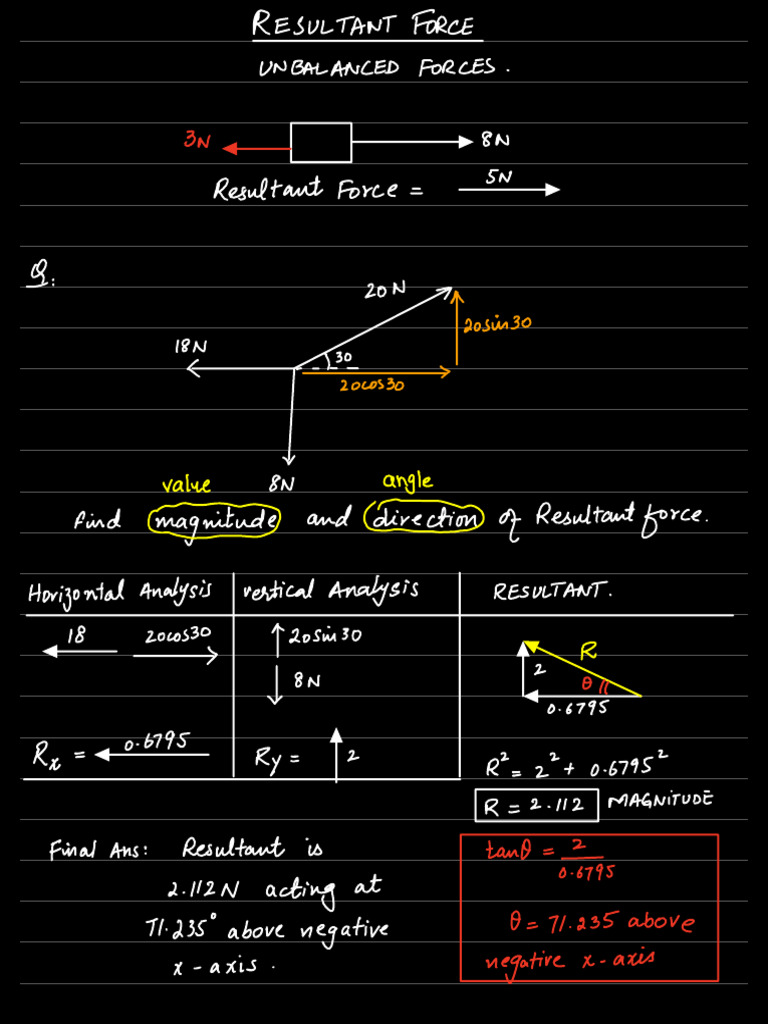 RESULTANT FORCE
UNBALANCED FORCES.
3N
8N
Resultant Force = 5N
Q.
20N
20sin30
18N
30
20cos30
8N
value
angle
find magnitude and direction of Resultant force.
Horizontal Analysis
vertical Analysis
RESULTANT.
18
20cos30
20sin30
8N
R
2
θ
0.6795
Rx = 0.6795
Ry = 2
R² = 2² + 0.6795²
R = 2.112 MAGNITUDE
Final Ans: Resultant is
2.112N acting at
71.235° above negative
x-axis.
tanθ = 2/0.6795
θ = 71.235 above
negative x-axis